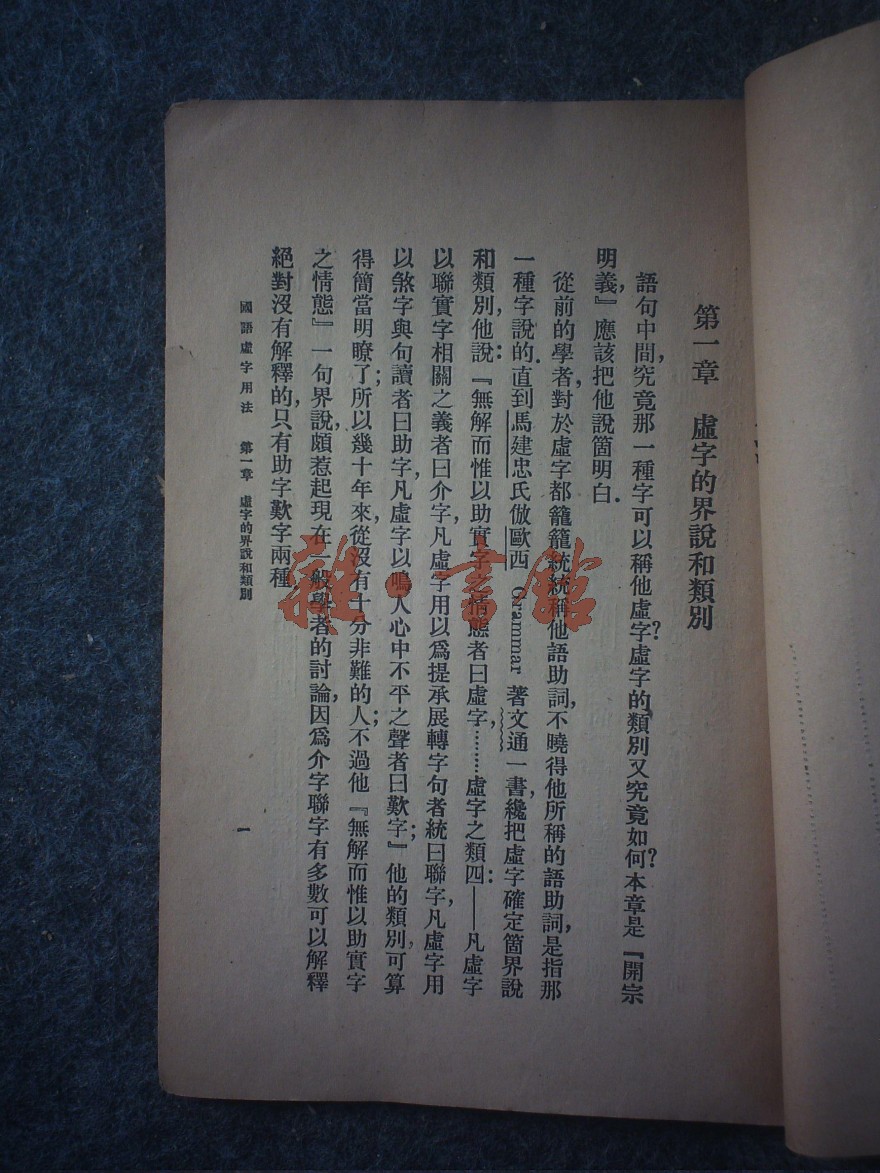 第一章　虛字的界說和類別
語句中間，究竟那一種字可以稱他虛字？虛字的類別又究竟如何？本章是『開宗
明義』，應該把他說箇明白．
從前的學者，對於虛字都籠籠統統稱他語助詞，不曉得他所稱的語助詞，是指那
一種字說的．直到馬建忠氏倣歐西 Grammar 著文通一書，纔把虛字確定箇界說
和類別，他說：『無解而惟以助實字之情態者曰虛字，………虛字之類四：——凡虛字
以聯實字相關之義者曰介字，凡虛字用以爲提承展轉字句者統曰聯字，凡虛字用
以煞字與句讀者曰助字，凡虛字以鳴人心中不平之聲者曰歎字；』他的類別，可算
得簡當明瞭了；所以幾十年來，從沒有十分非難的人；不過他『無解而惟以助實字
之情態』一句界說，頗惹起現在一般學者的討論，因爲介字聯字有多數可以解釋，
絕對沒有解釋的，只有助字歎字兩種，
國語虛字用法　第一章　虛字的界說和類別
一
雜·書館